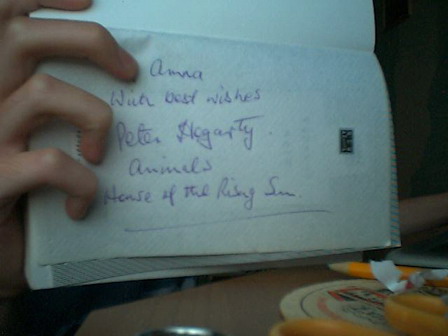 Amna
With best wishes
Peter Hegarty.
Animals
House of the Rising Sun.